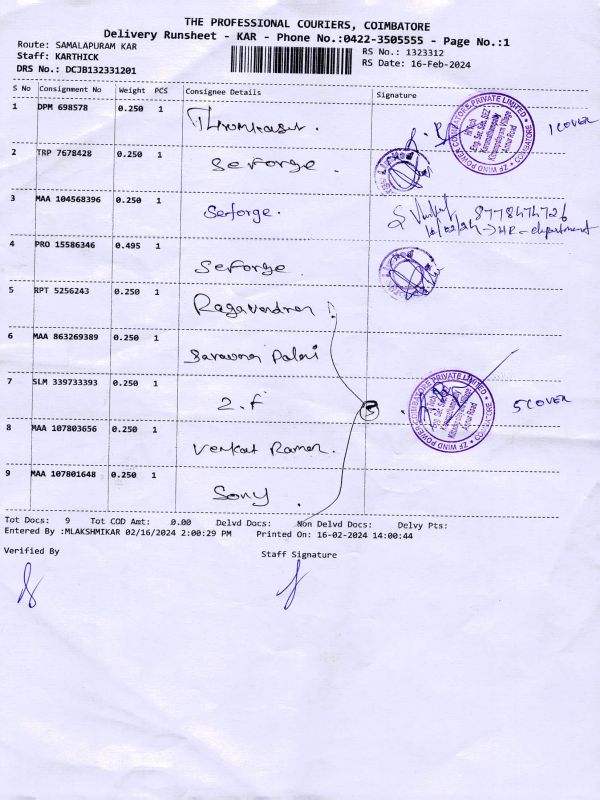 THE PROFESSIONAL COURIERS, COIMBATORE
Delivery Runsheet - KAR - Phone No.:0422-3505555 - Page No.:1
Route: SAMALAPURAM KAR
Staff: KARTHICK
DRS No.: DCJB132331201
RS No.: 1323312
RS Date: 16-Feb-2024
S No Consignment No Weight PCS Consignee Details Signature
1 DPM 698578 0.250 1
1 COVER
2 TRP 7678428 0.250 1 Seforge
3 MAA 104568396 0.250 1 Serforge.
8778474726
16/02/24 → HR - department
4 PRO 15586346 0.495 1 SeForge
5 RPT 5256243 0.250 1 Ragavendran
6 MAA 863269389 0.250 1 Saravana Palani
7 SLM 339733393 0.250 1 Z.F
5
5 COVER
8 MAA 107803656 0.250 1 Venkat Raman.
9 MAA 107801648 0.250 1 Sony
ZF WIND POWER COIMBATORE PRIVATE LIMITED
COIMBATORE
Annur Road
Tot Docs: 9 Tot COD Amt: 0.00 Delvd Docs: Non Delvd Docs: Delvy Pts:
Entered By :MLAKSHMIKAR 02/16/2024 2:00:29 PM Printed On: 16-02-2024 14:00:44
Verified By Staff Signature